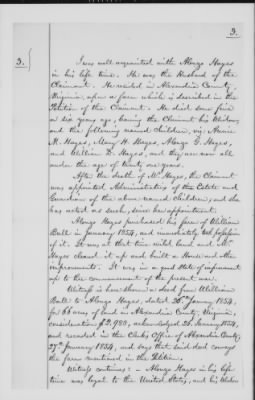 3.
3.
I was well acquainted with Alonzo Hayes
in his life time. He was the Husband of the
Claimant. He resided in Alexandria County
Virginia, upon a farm which is described in the
Petition of the Claimant. He died some five
or six years ago, leaving the Claimant his Widow,
and the following named children, viz: Annie
M. Hayes, Mary H. Hayes, Alonzo G. Hayes,
and William B. Hayes, and they are now all
under the age of twenty one years.
After the death of Mr. Hayes, the Claimant
was appointed Administratrix of the Estate and
Guardian of the above named children, and she
has acted as such, since her appointment.
Alonzo Hayes purchased his farm of William
Ball in January 1854, and immediately took possession
of it. It was at that time wild land and Mr.
Hayes cleared it up and built a House and other
improvements. It was in a good state of improvement
up to the commencement of the present war.
Witness is here shown a deed from William
Ball to Alonzo Hayes, dated 26th January 1854,
for 66 acres of land in Alexandria County, Virginia,
consideration $2,980, acknowledged 26 January 1854,
and recorded in the Clerk's Office of Alexandria County,
27th January 1854, and says that said deed conveys
the farm mentioned in the Petition.
Witness continues: - Alonzo Hayes in his life
time was loyal to the United States, and his Widow